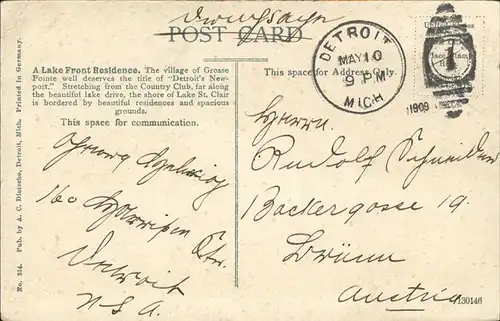 POST CARD
A Lake Front Residence. The village of Grosse
Pointe well deserves the title of "Detroit's New-
port." Stretching from the Country Club, far along
the beautiful lake drive, the shore of Lake St. Clair
is bordered by beautiful residences and spacious
grounds.
This space for communication.
Georg
160 Str.
Detroit
USA.
No. 214. Pub. by A. C. Dietsche, Detroit, Mich. Printed in Germany.
DETROIT
MAY 10
9 PM
MICH
1909
This space for Address Only.
Herrn
Rudolf Schneider
Backergosse 19.
Brünn
Austria
130146